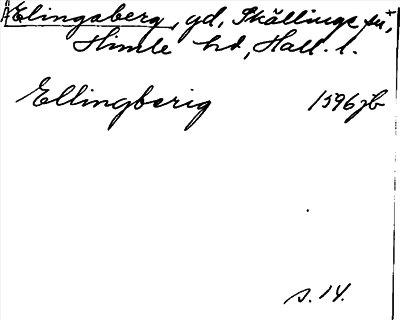 Elingaberg, gd, Skällinge sn,
Himle hd, Hall. l.
Ellingberig 1596 jb
s. 14.